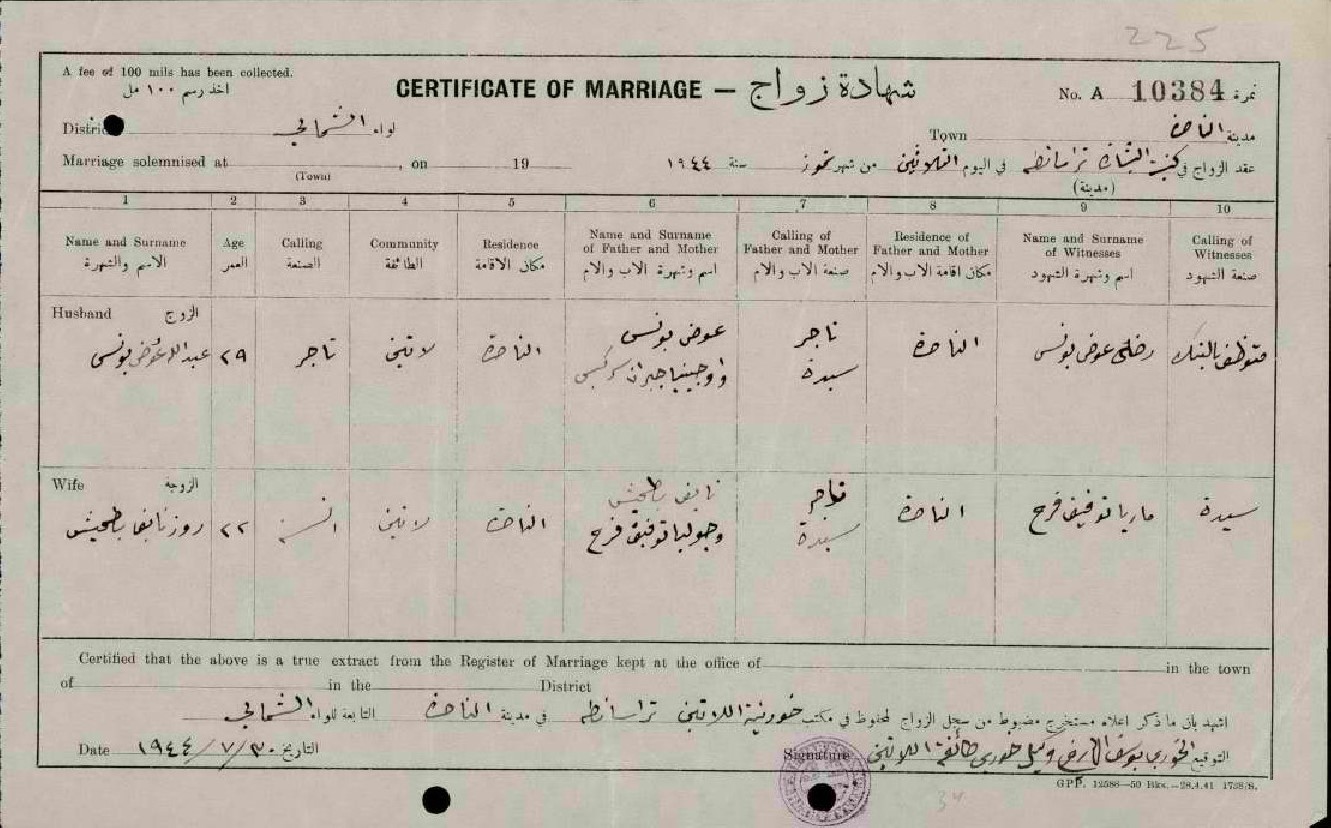 225
A fee of 100 mils has been collected.
اخذ رسم ١٠٠ مل
CERTIFICATE OF MARRIAGE — شهادة زواج
No. A 10384 نمرة
District لواء الشمالي
Town مدينة الناصرة
Marriage solemnised at , on 19
(Town)
عقد الزواج في كنيسة البشارة تراسانطه في اليوم الثلاثين من شهر تموز سنة ١٩٤٤
(مدينة)
1 2 3 4 5 6 7 8 9 10
Name and Surname
الاسم والشهرة
Age
العمر
Calling
الصنعة
Community
الطائفة
Residence
مكان الاقامة
Name and Surname
of Father and Mother
اسم وشهرة الاب والام
Calling of
Father and Mother
صنعة الاب والام
Residence of
Father and Mother
مكان اقامة الاب والام
Name and Surname
of Witnesses
اسم وشهرة الشهود
Calling of
Witnesses
صنعة الشهود
Husband الزوج
عبدالله عوض يونس
٢٩
تاجر
لاتين
الناصرة
عوض يونس
واوجينيا جبران سركيس
تاجر
سيدة
الناصرة
عوض يونس
بالبنك
Wife الزوجه
روز نايف بطحيش
٢٢
لاتين
الناصرة
نايف بطحيش
وجوليا توفيق فرح
تاجر
سيدة
الناصرة
ماريا توفيق فرح
سيدة
Certified that the above is a true extract from the Register of Marriage kept at the office of in the town
of in the District
اشهد بان ما ذكر اعلاه مستخرج مضبوط من سجل الزواج المحفوظ في مكتب خورنية اللاتين تراسانطه في مدينة الناصرة التابعة للواء الشمالي
Date ١٩٤٤/٧/٣٠ التاريخ
Signature التوقيع الخوري يوسف خوري طائفة اللاتين
GPP. 12586—50 Bks.—28.4.41 1738/S.